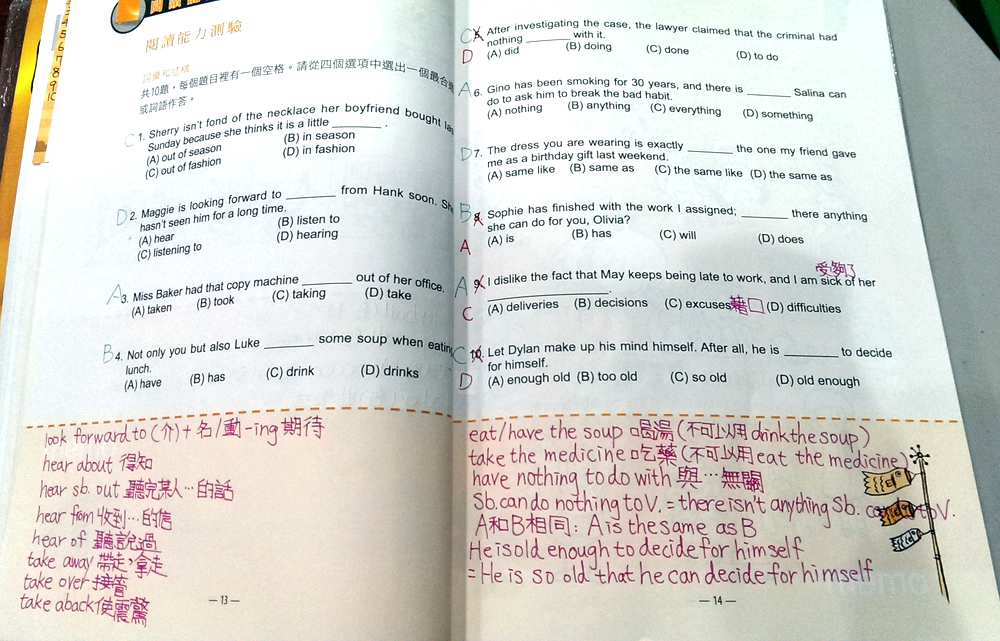 閱讀能力測驗
詞彙和結構
共10題，每個題目裡有一個空格。請從四個選項中選出一個最合適
或詞語作答。
C 1. Sherry isn't fond of the necklace her boyfriend bought las
Sunday because she thinks it is a little ________ .
(A) out of season (B) in season
(C) out of fashion (D) in fashion
D 2. Maggie is looking forward to ________ from Hank soon. She
hasn't seen him for a long time.
(A) hear (B) listen to
(C) listening to (D) hearing
A 3. Miss Baker had that copy machine ________ out of her office.
(A) taken (B) took (C) taking (D) take
B 4. Not only you but also Luke ________ some soup when eating
lunch.
(A) have (B) has (C) drink (D) drinks
look forward to (介) + 名/動-ing 期待
hear about 得知
hear sb. out 聽完某人…的話
hear from 收到…的信
hear of 聽說過
take away 帶走，拿走
take over 接管
take aback 使震驚
— 13 —
C 5. After investigating the case, the lawyer claimed that the criminal had
nothing ________ with it.
D (A) did (B) doing (C) done (D) to do
A 6. Gino has been smoking for 30 years, and there is ________ Salina can
do to ask him to break the bad habit.
(A) nothing (B) anything (C) everything (D) something
D 7. The dress you are wearing is exactly ________ the one my friend gave
me as a birthday gift last weekend.
(A) same like (B) same as (C) the same like (D) the same as
B 8. Sophie has finished with the work I assigned; ________ there anything
she can do for you, Olivia?
A (A) is (B) has (C) will (D) does
受夠了
A 9. I dislike the fact that May keeps being late to work, and I am sick of her
________________.
C (A) deliveries (B) decisions (C) excuses 藉口 (D) difficulties
C 10. Let Dylan make up his mind himself. After all, he is ________ to decide
for himself.
D (A) enough old (B) too old (C) so old (D) old enough
eat/have the soup 喝湯 (不可以用 drink the soup)
take the medicine 吃藥 (不可以用 eat the medicine)
have nothing to do with 與…無關
Sb. can do nothing to V. = there isn't anything Sb. can do to V.
A和B相同: A is the same as B
He is old enough to decide for himself
= He is so old that he can decide for himself
— 14 —